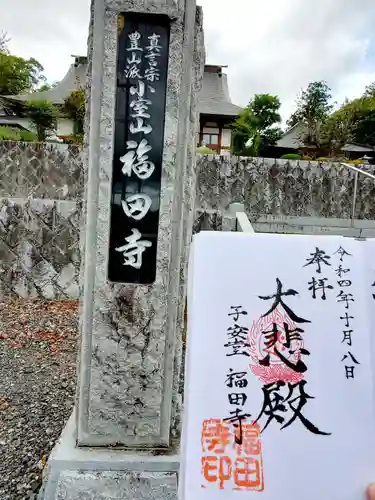 真言宗
豊山派
小室山
福田寺
奉拝
令和四年十月八日
大悲殿
子安堂
福田寺
福田
寺印